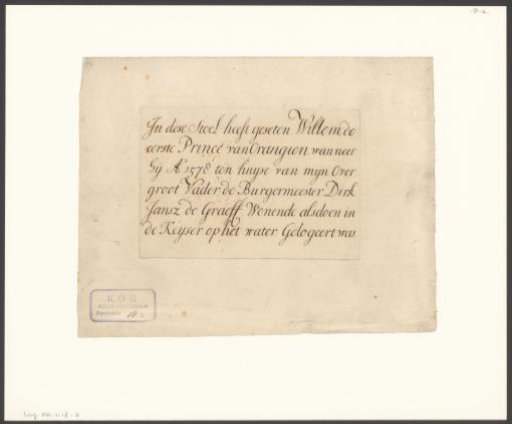 In dese Stoel heeft geseten Willem de
eerste Prince van Orangien wanneer
hy Aº 1578 ten huyse van myn Over
groot Vader de Burgermeester Dirk
Jansz de Graeff Wonende alsdoen in
de Keyser op het water Gelogeert was
K.O.G